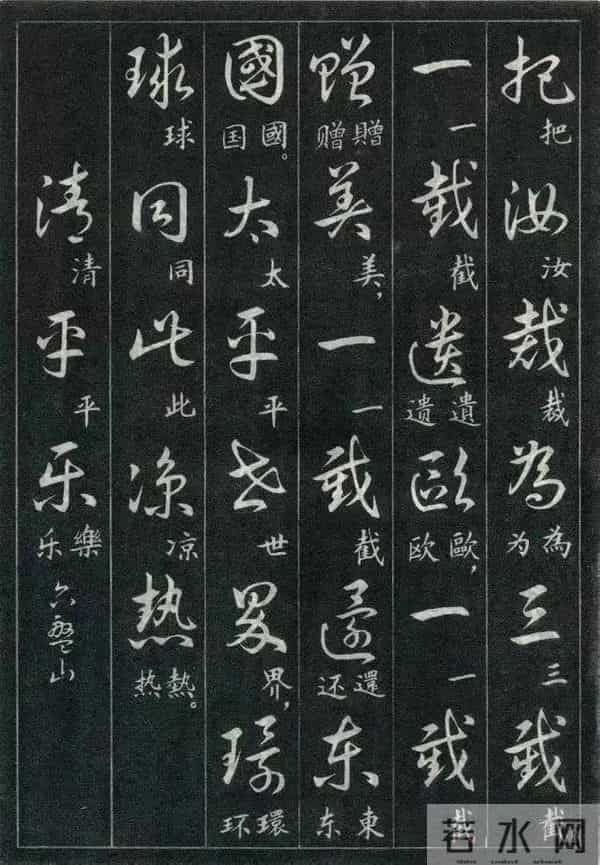 把汝裁為三截
把 汝 裁 為为 三 截
一截遗歐一截
一 截 遺遗 歐，欧 一 截
赠美一截還东
贈赠 美， 一 截 還还 東东
國太平世界環
國。国 太 平 世 界， 環环
球同此凉热
球 同 此 凉 熱。热
清平乐
清 平 樂乐
六盘山
若水网